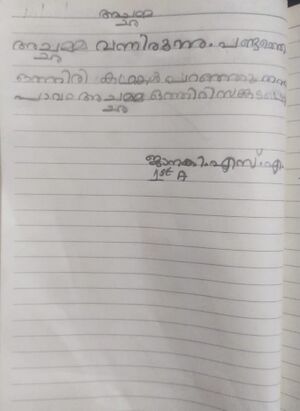 അച്ചമ്മ
അച്ചമ്മ വന്നിരുന്നു. പണ്ടത്തെ
ഒത്തിരി കഥകൾ പറഞ്ഞു തന്നു
പാവം അച്ചമ്മ ഒത്തിരി സങ്കടപ്പെട്ടു
ജാനകി. എസ്. എം.
1st A